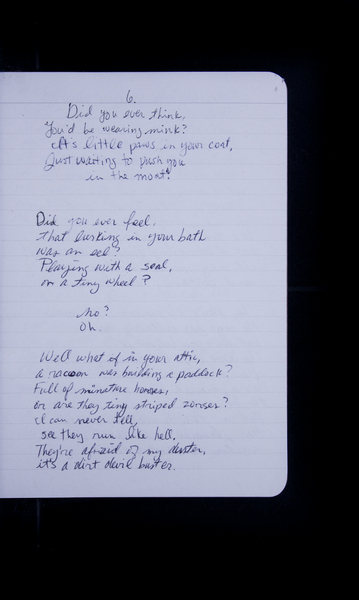 6.
Did you ever think,
You'd be wearing mink?
It's little paws in your coat,
Just waiting to push you
in the moat!
Did you ever feel,
that lurking in your bath
was an eel?
Playing with a seal,
on a tiny wheel?
No?
Oh.
Well what if in your attic,
a racoon was building a paddock?
Full of minature horses,
or are they tiny striped zorses?
I can never tell,
see they run like hell.
They're afraid of my duster,
it's a dirt devil buster.